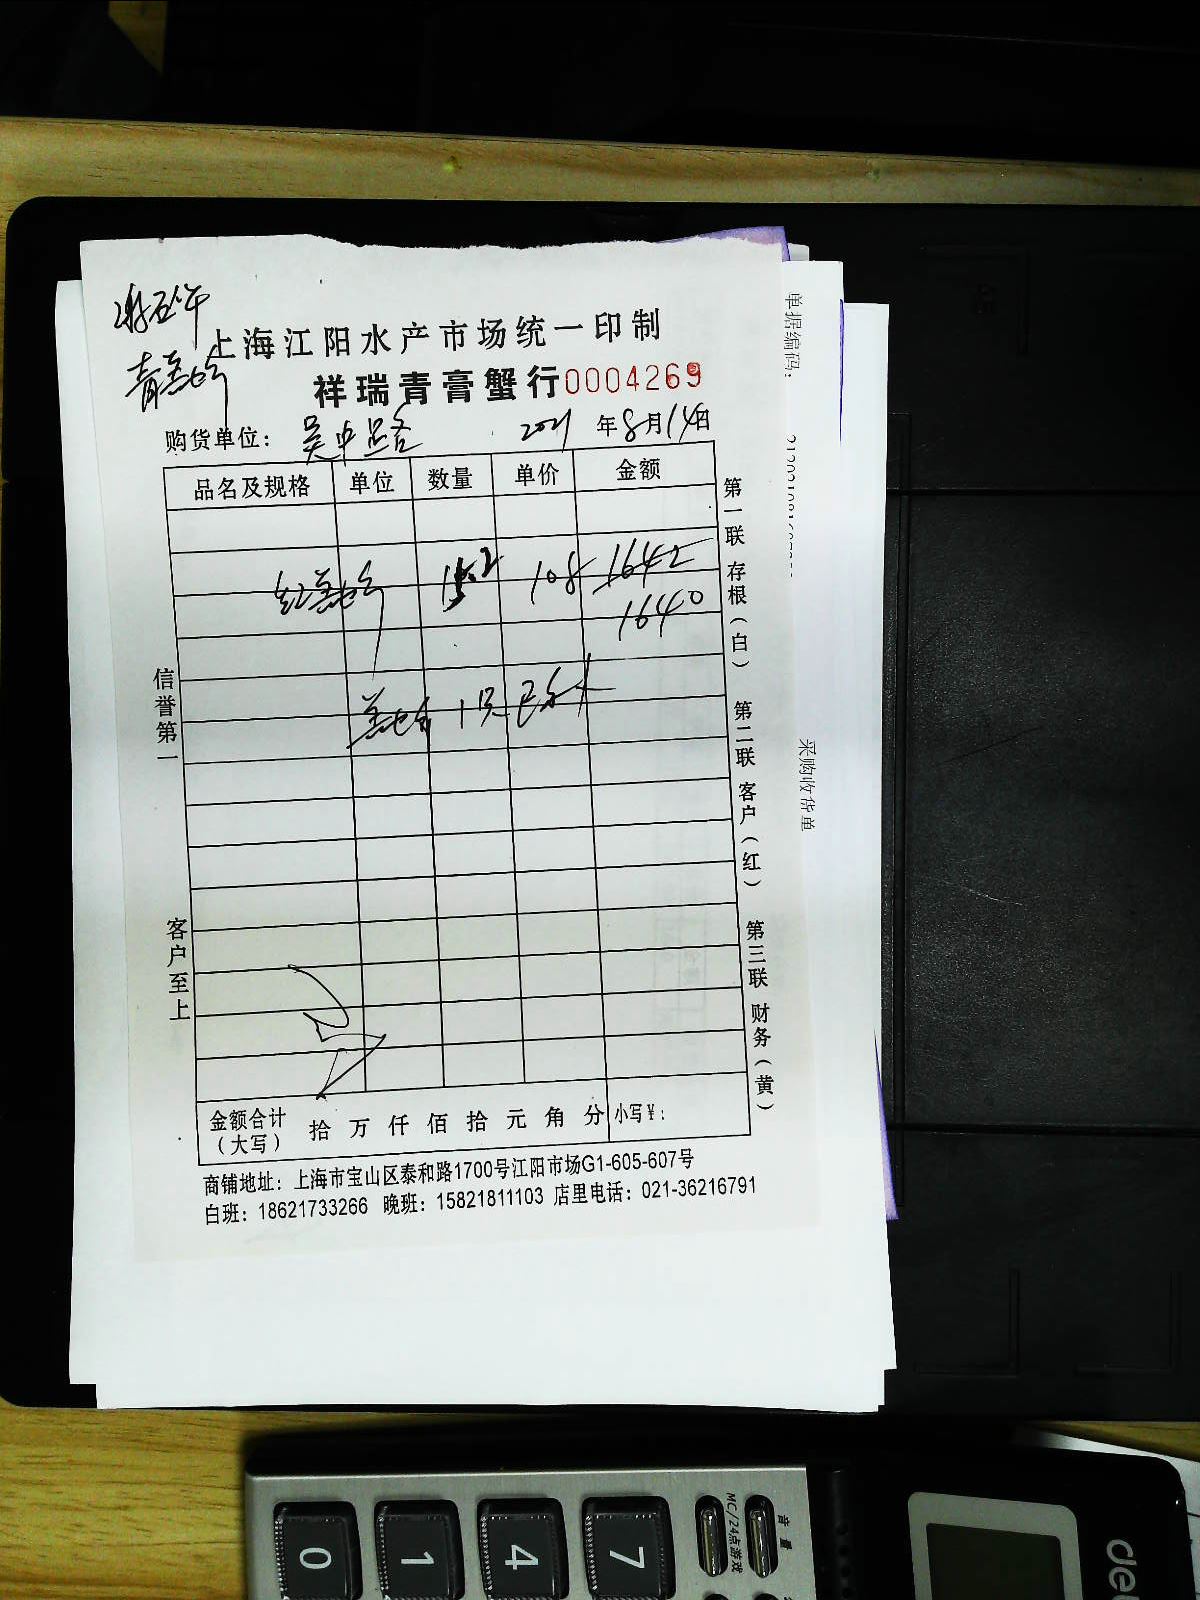 上海江阳水产市场统一印制
祥瑞青膏蟹行 0004269
购货单位: 吴中路 2021年8月14日
品名及规格 单位 数量 单价 金额
红膏 15.2 108 1642
1640
1只
信誉第一
客户至上
第一联 存根(白)
第二联 客户(红)
第三联 财务(黄)
金额合计(大写) 拾 万 仟 佰 拾 元 角 分 小写¥:
商铺地址: 上海市宝山区泰和路1700号江阳市场G1-605-607号
白班: 18621733266 晚班: 15821811103 店里电话: 021-36216791
单据编码:
采购收货单
音量
MC/24点游戏
0 1 4 7
de